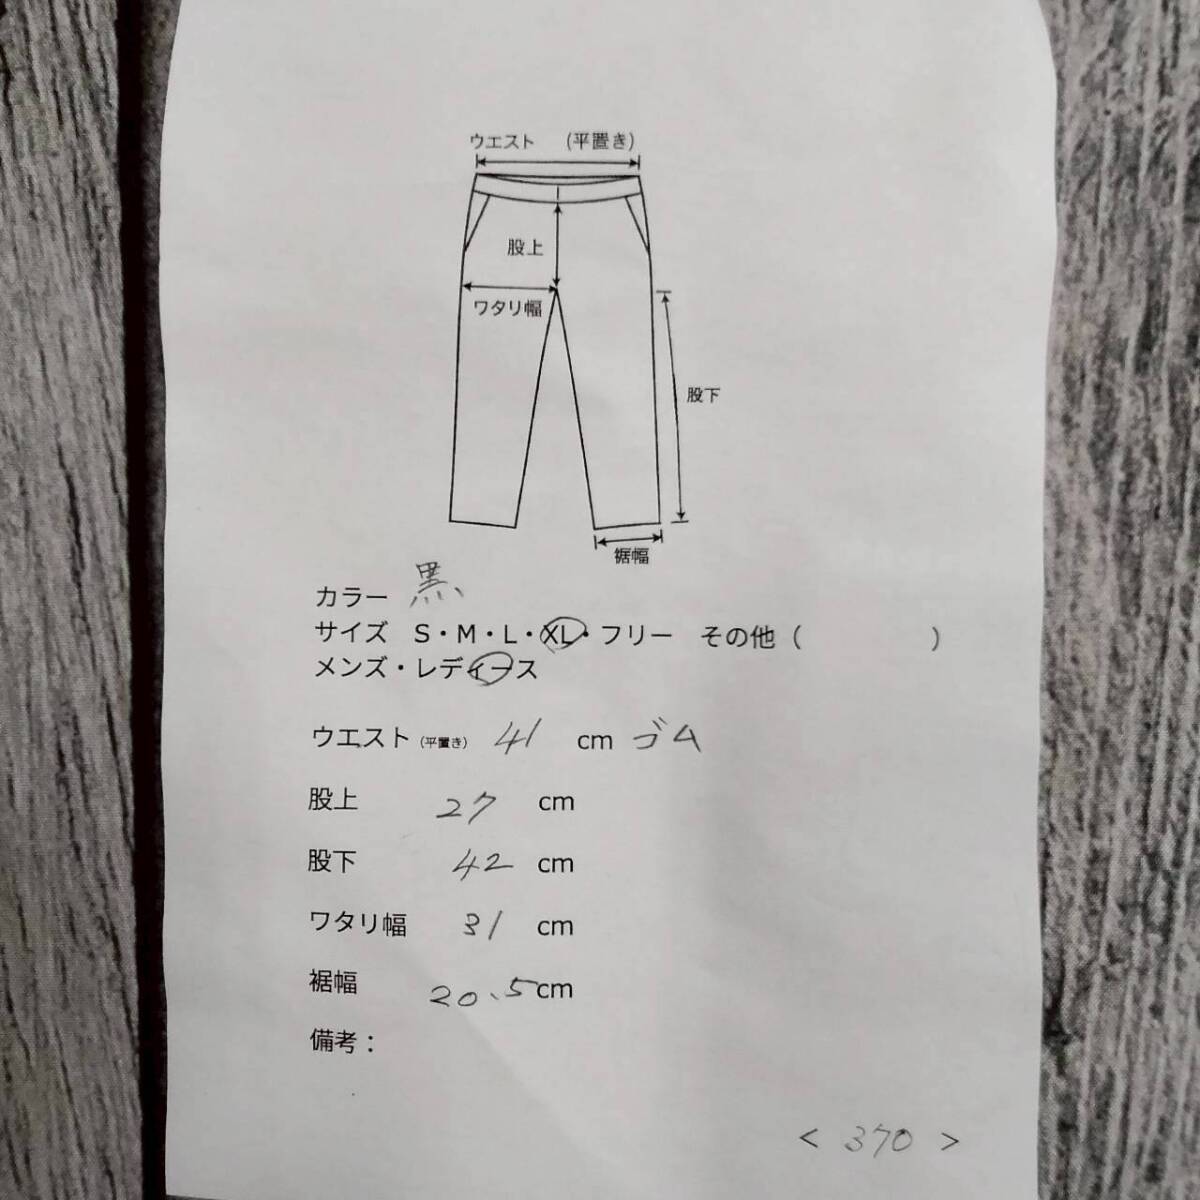 ウエスト (平置き)
股上
ワタリ幅
股下
裾幅
カラー 黒
サイズ S・M・L・XL・フリー その他 ( )
メンズ・レディース
ウエスト (平置き) 41 cm ゴム
股上 27 cm
股下 42 cm
ワタリ幅 31 cm
裾幅 20.5 cm
備考：
< 370 >